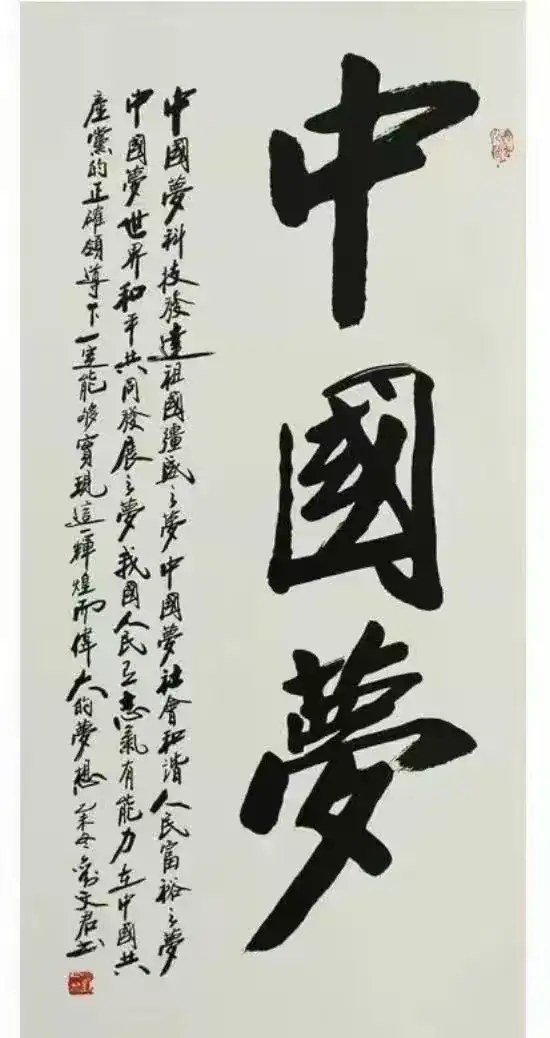 中國夢
中國夢科技發達祖國彊盛之夢中國夢社會和諧人民富裕之夢
中國夢世界和平共同發展之夢我國人民立志氣有能力在中國共
產黨的正確領導下一定能够實現這一輝煌而偉大的夢想乙未冬劉文君书